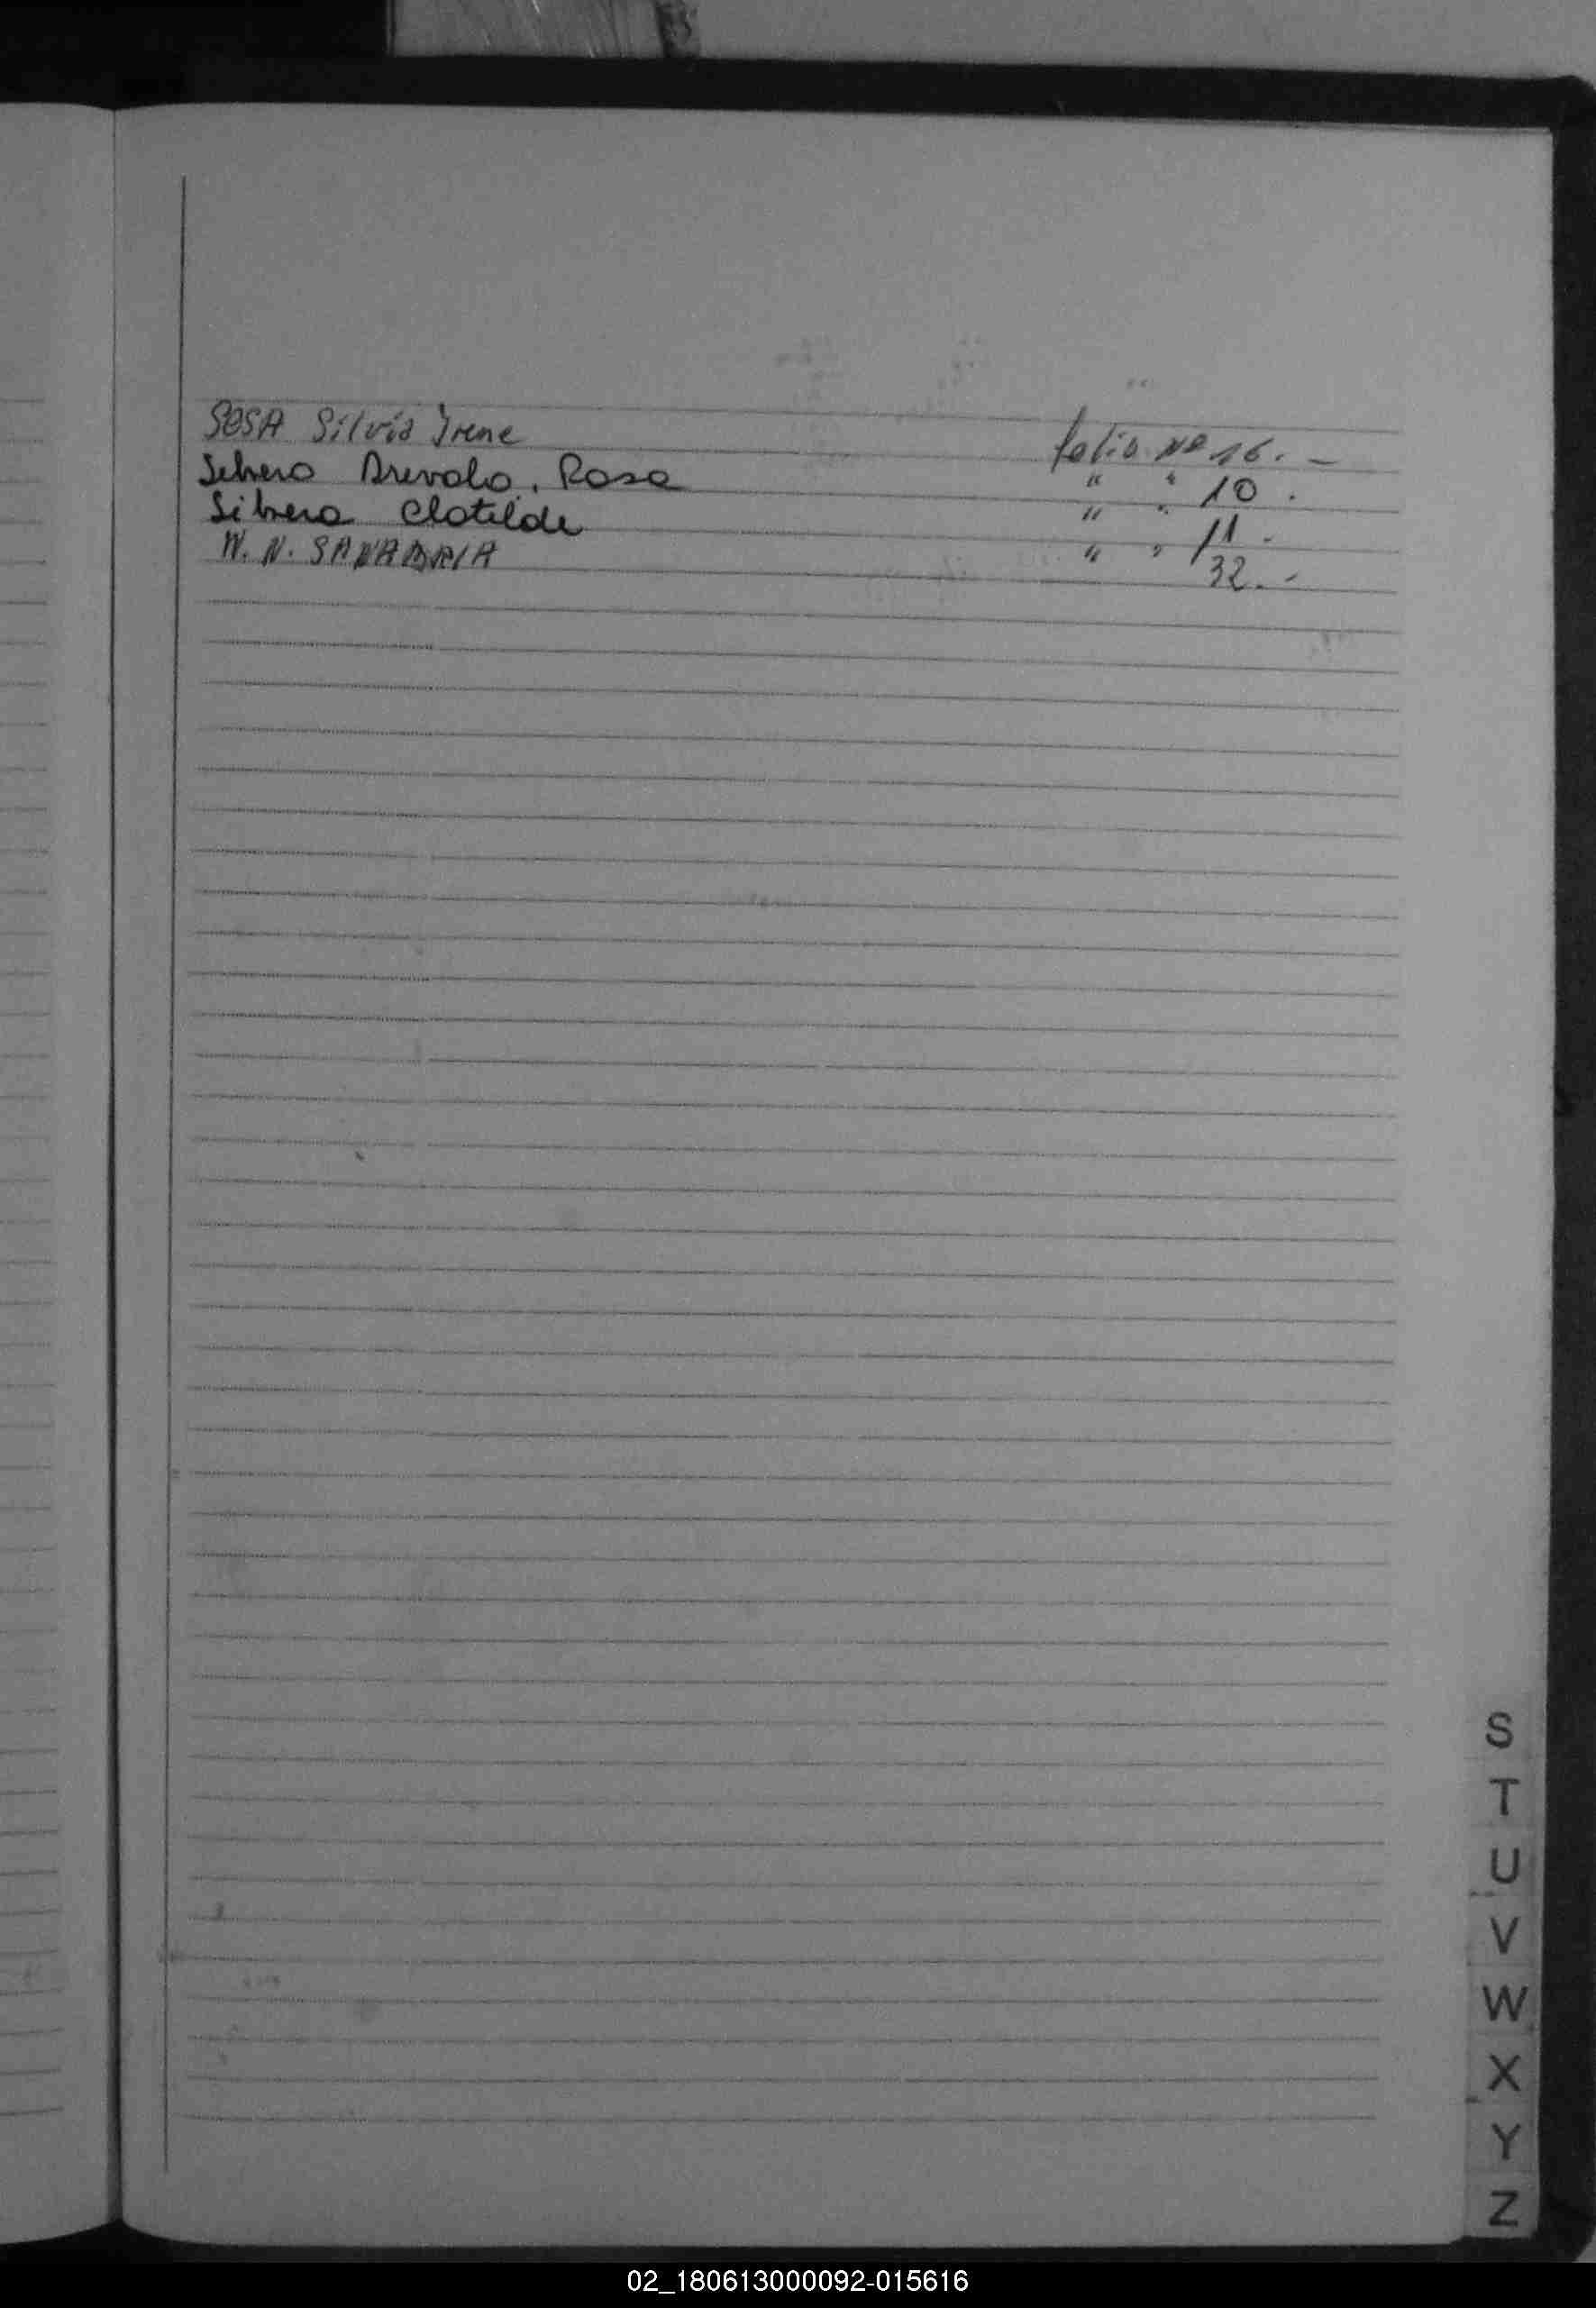 SOSA Silvia Irene folio Nº 16. -
Silvera Arevalo. Rosa " " 10 .
Silvera Clotilde " " 11 -
N. N. SANABRIA " " 32. -
S
T
U
V
W
X
Y
Z
02_180613000092-015616